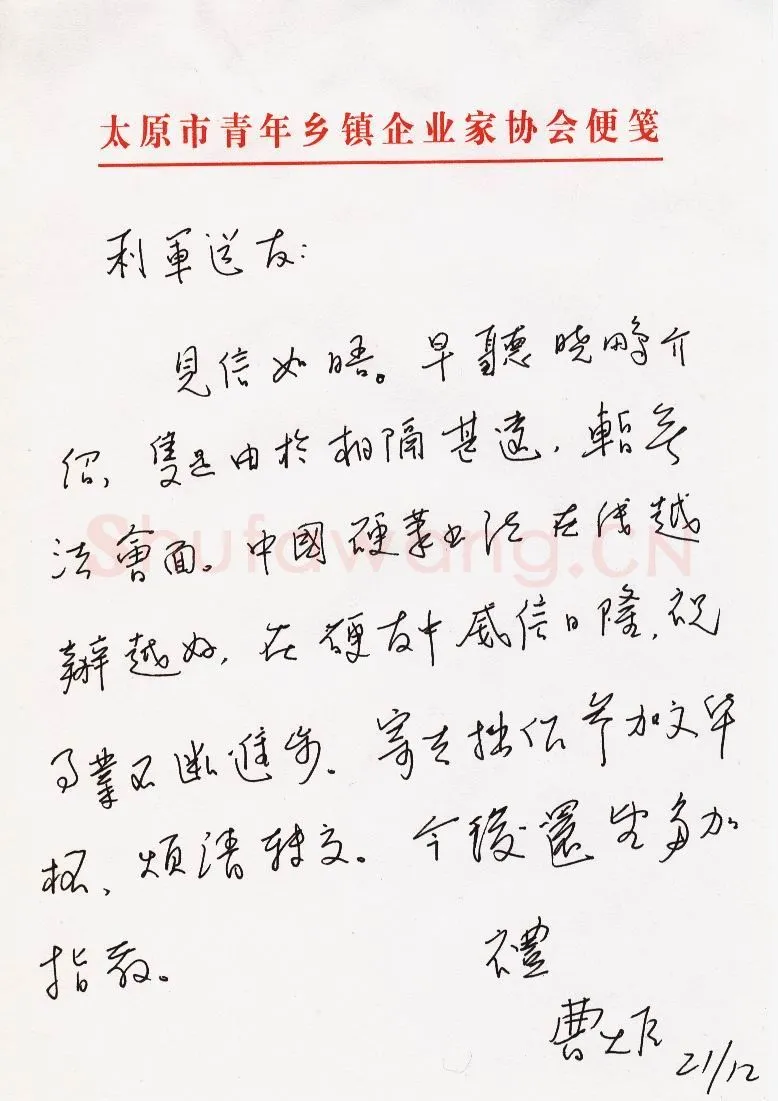 太原市青年乡镇企业家协会便笺
利軍道友：
見信如晤。早聽曉鵬介
紹，隻是由於相隔甚遠，暫無
法會面。中國硬筆書法在綫越
辦越好，在硬友中威信日隆，祝
事業不斷進步。寄去拙作参加文华
杯，煩請转交。今後還望多加
指教。
禮
曹
21/12
Shufawang.CN